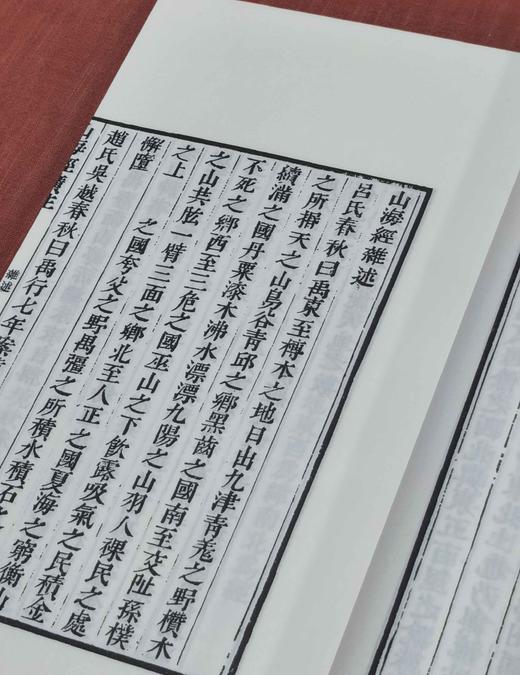 山海經雜述
呂氏春秋曰禹東至榑木之地日出九津青羌之野欑木
之所㨉天之山鳥谷青邱之鄉黑齒之國南至交阯孫樸
續滿之國丹粟漆木沸水漂漂九陽之山羽人裸民之處
不死之鄉西至三危之國巫山之下飲露吸氣之民積金
之山共肱一臂三面之鄉北至人正之國夏海之窮衡山
之上　　之國夸父之野禺彊之所積水積石之
懈墮
趙氏吳越春秋曰禹行七年案
山海經廣注
雜述